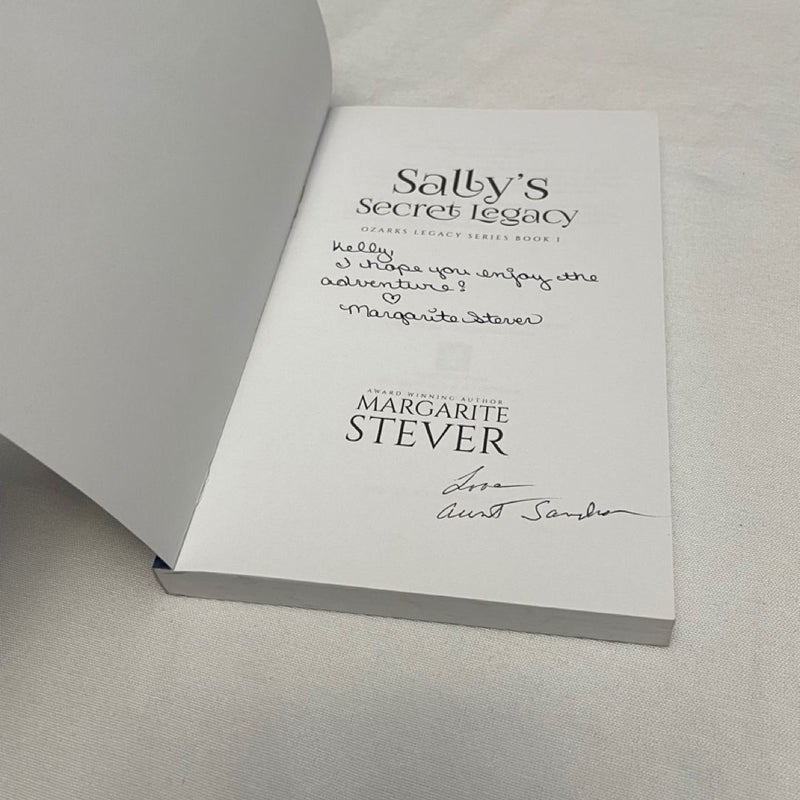 Sally's
Secret Legacy
OZARKS LEGACY SERIES BOOK 1
Kelly,
I hope you enjoy the
adventure!
Margarite Stever
AWARD WINNING AUTHOR
MARGARITE
STEVER
Love
Aunt Sandra